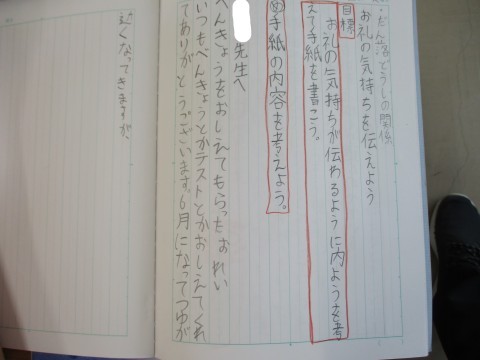 ・だん落どうしの関係
お礼の気持ちを伝えよう
目標
お礼の気持ちが伝わるように内ようを考
えて手紙を書こう。
手紙の内容を考えよう。
先生へ
べんきょうをおしえてもらったおれい
いつもべんきょうとかテストとかおしえてくれ
てありがとうございます。6月になってつゆが
近くなってきますが、